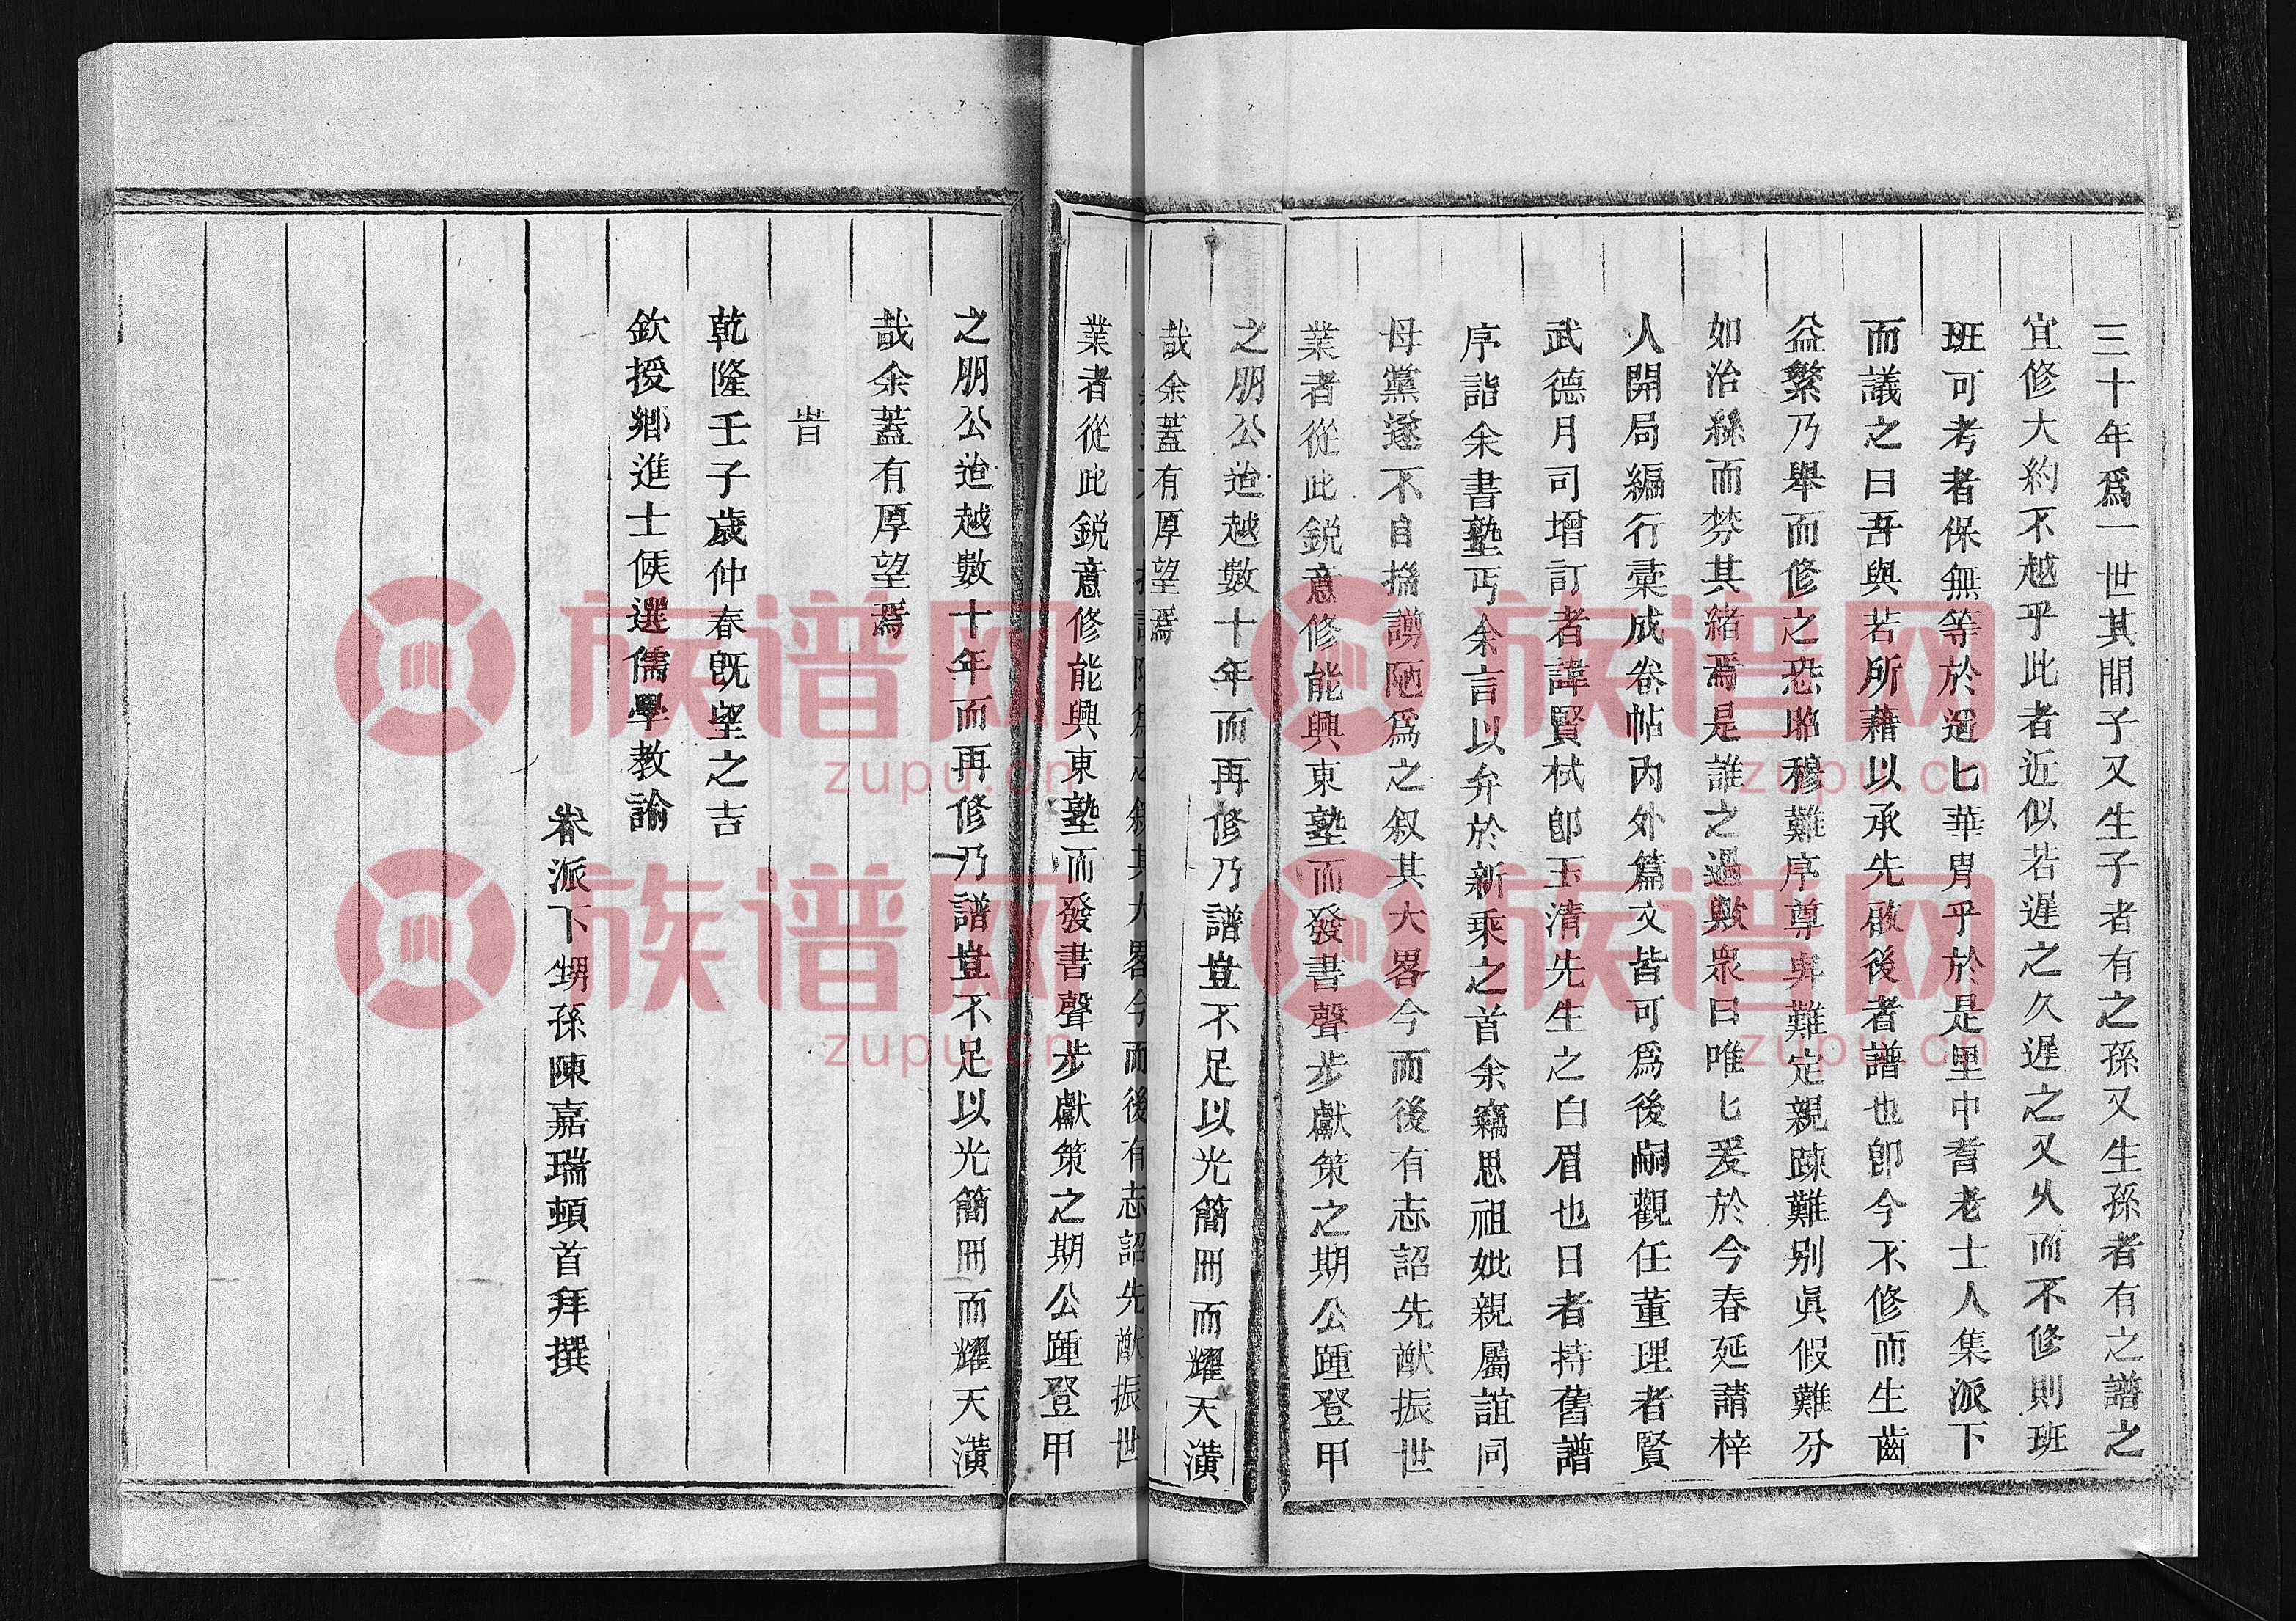 三十年爲一世其間子又生子者有之孫又生孫者有之譜之
宜修大約不越乎此者近似若遲之久遲之又久而不修則班
班可考者保無等於遥匕華胄乎於是里中耆老士人集派下
而議之曰吾與若所藉以承先啟後者譜也卽今不修而生齒
益繁乃舉而修之恐昭穆難序尊卑難定親踈難别眞假難分
如治絲而棼其緒焉是誰之過歟衆曰唯匕爰於今春延請梓
人開局編行彚成卷帖内外篇文皆可爲後嗣觀任董理者賢
武德月司增訂者諱賢栻卽玉清先生之白眉也日者持舊譜
序詣余書塾丐余言以弁於新乘之首余竊思祖妣親屬誼同
母黨遂不自揣謭陋爲之叙其大畧今而後有志詔先猷振世
業者從此鋭意修能興東塾而發書聲步獻策之期公踵登甲
之朋公迨越數十年而再修乃譜豈不足以光簡冊而耀天潢
哉余蓋有厚望焉
業者從此鋭意修能興東塾而發書聲步獻策之期公踵登甲
之朋公迨越數十年而再修乃譜豈不足以光簡冊而耀天潢
哉余蓋有厚望焉
旹
乾隆壬子歲仲春旣望之吉
欽授鄉進士候選儒學教諭
眷派下甥孫陳嘉瑞頓首拜撰
族谱网
zupu.cn
族谱网
zupu.cn
族谱网
zupu.cn
族谱网
zupu.cn